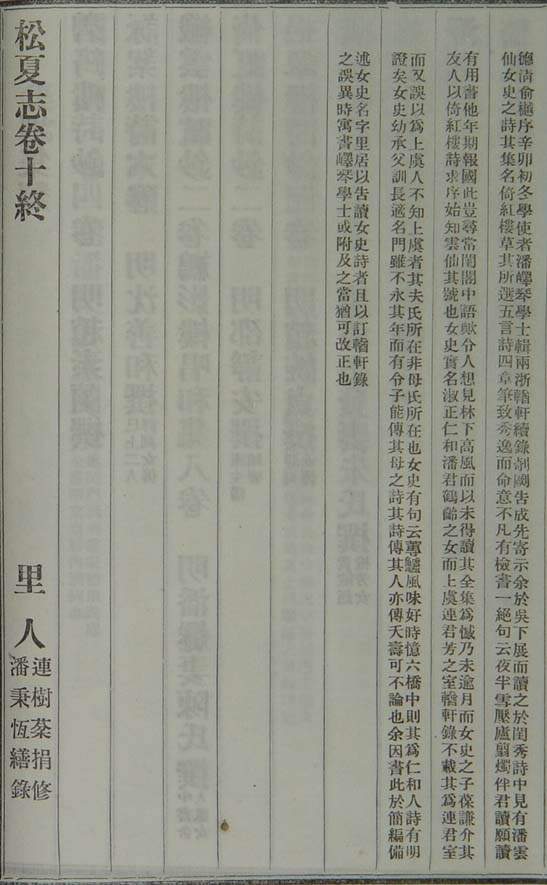 德清俞樾序辛卯初冬學使者潘嶧琴學士輯兩浙輶軒續錄剞劂告成先寄示余於吳下展而讀之於閨秀詩中見有潘雲
仙女史之詩其集名倚紅樓草其所選五言詩四章筆致秀逸而命意不凡有檢書一絕句云夜半雪壓廬翦燭伴君讀願讀
有用書他年期報國此豈尋常閨閤中語歟令人想見林下高風而以未得讀其全集為憾乃未逾月而女史之子葆謙介其
友人以倚紅樓詩求序始知雲仙其號也女史實名淑正仁和潘君鶴齡之女而上虞連君芳之室輶軒錄不載其為連君室
而又誤以為上虞人不知上虞者其夫氏所在非母氏所在也女史有句云蓴鱸風味好時憶六橋中則其為仁和人詩有明
證矣女史幼承父訓長適名門雖不永其年而有令子能傳其母之詩其詩傳其人亦傳夭壽可不論也余因書此於簡編備
述女史名字里居以告讀女史詩者且以訂輶軒錄
之誤異時寓書嶧琴學士或附及之當猶可改正也
松夏志卷十終
里人
連樹棻捐修
潘秉恆繕錄